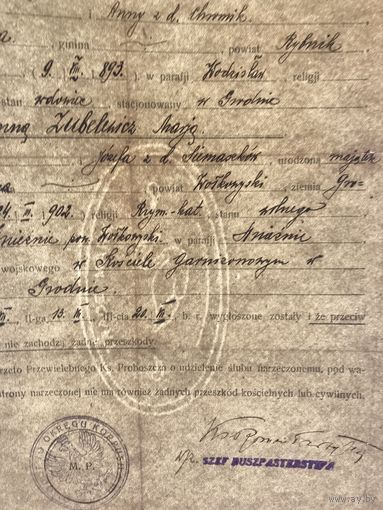 Anny z d. Chronik.
a. , gmina , powiat Rybnik
( 9. III. 893. ) w parafji Wodzisław religji
stan wdowiec , stacjonowany w Grodnie
nną Zubelewicz Marją.
Józefa z d. Siemaszków, urodzona majątek
powiat Wołkowyski , ziemia Gro-
24. II. 902. ) religji Rzym.-kat. stanu wolnego
pow. Wołkowyski. w parafji
wojskowego w Kościele Garnizonowym w
Grodnie.
II-ga 13. III. III-cia 20. III. , b. r., wygłoszone zostały i że przeciw
nie zachodzą żadne przeszkody.
rzeto Przewielebnego Ks. Proboszcza o udzielenie ślubu narzeczonemu, pod wa-
strony narzeczonej niema również żadnych przeszkód kościelnych lub cywilnych.
OKRĘGU KORPUSU
M. P.
w/z. SZEF DUSZPASTERSTWA
www.ay.by